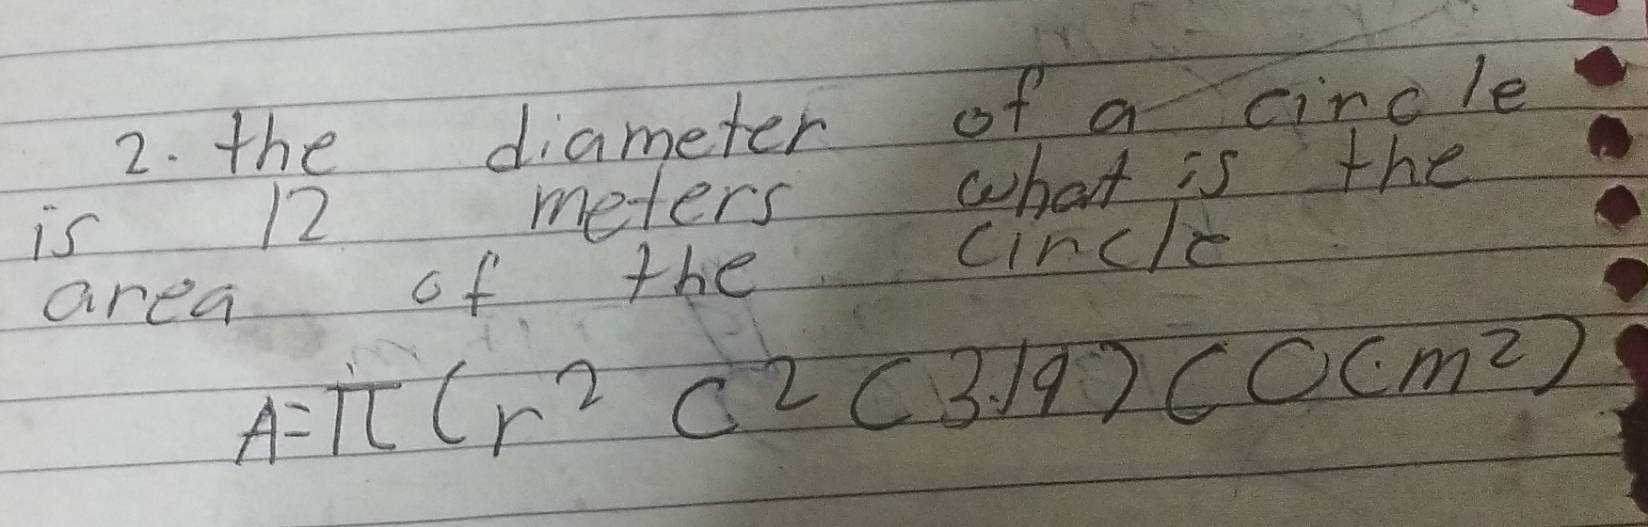 2. the diameter of a circle
is 12 meters what is the
area of the circle
A=π(r² C² (3.19) ( O(m²)